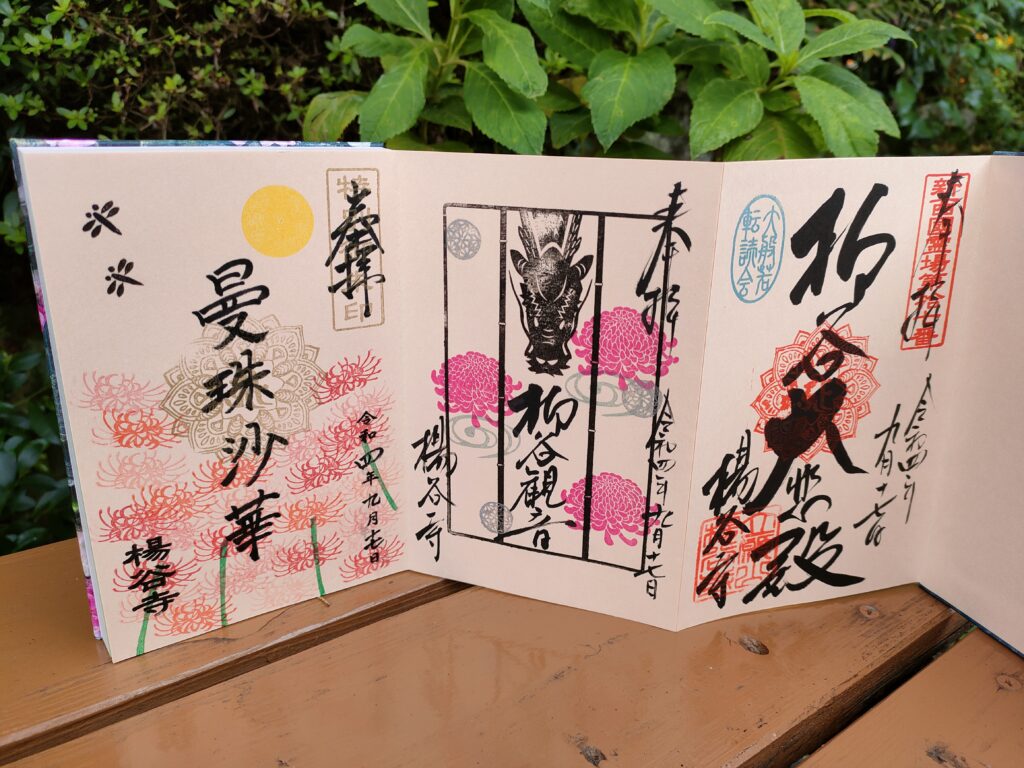 奉拝
令和四年九月十七日
曼珠沙華
楊谷寺
奉拝
令和四年九月十七日
柳谷観音
楊谷寺
新西国霊場第十七番
奉拝
令和四年
九月十七日
柳谷大悲殿
大般若
転読会
楊谷寺